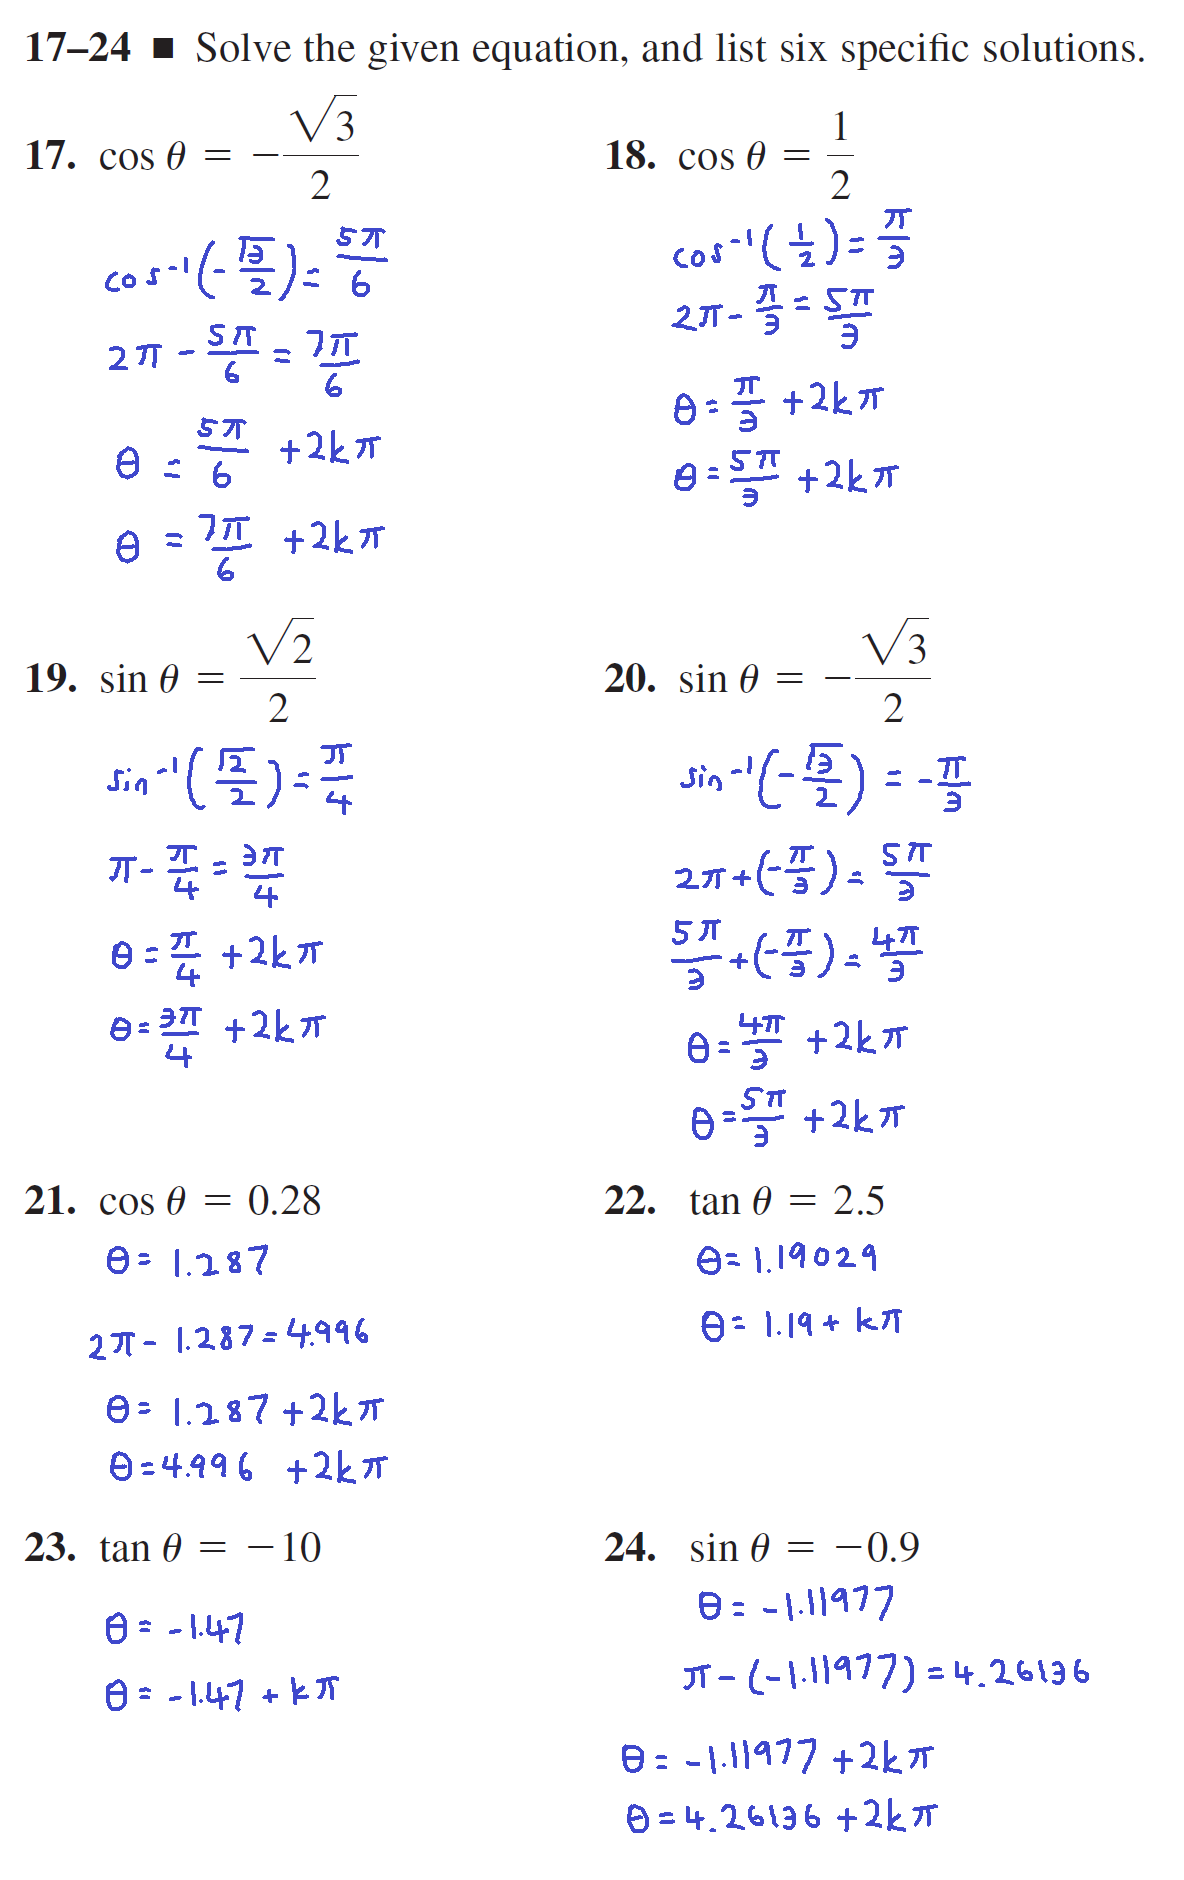 17–24 ■ Solve the given equation, and list six specific solutions.
17. cos θ = −√3/2
cos⁻¹(-√3/2) = 5π/6
2π - 5π/6 = 7π/6
θ = 5π/6 + 2kπ
θ = 7π/6 + 2kπ
18. cos θ = 1/2
cos⁻¹(1/2) = π/3
2π - π/3 = 5π/3
θ = π/3 + 2kπ
θ = 5π/3 + 2kπ
19. sin θ = √2/2
sin⁻¹(√2/2) = π/4
π - π/4 = 3π/4
θ = π/4 + 2kπ
θ = 3π/4 + 2kπ
20. sin θ = −√3/2
sin⁻¹(-√3/2) = -π/3
2π + (-π/3) = 5π/3
5π/3 + (-π/3) = 4π/3
θ = 4π/3 + 2kπ
θ = 5π/3 + 2kπ
21. cos θ = 0.28
θ = 1.287
2π - 1.287 = 4.996
θ = 1.287 + 2kπ
θ = 4.996 + 2kπ
22. tan θ = 2.5
θ = 1.19029
θ = 1.19 + kπ
23. tan θ = −10
θ = -1.47
θ = -1.47 + kπ
24. sin θ = −0.9
θ = -1.11977
π - (-1.11977) = 4.26136
θ = -1.11977 + 2kπ
θ = 4.26136 + 2kπ